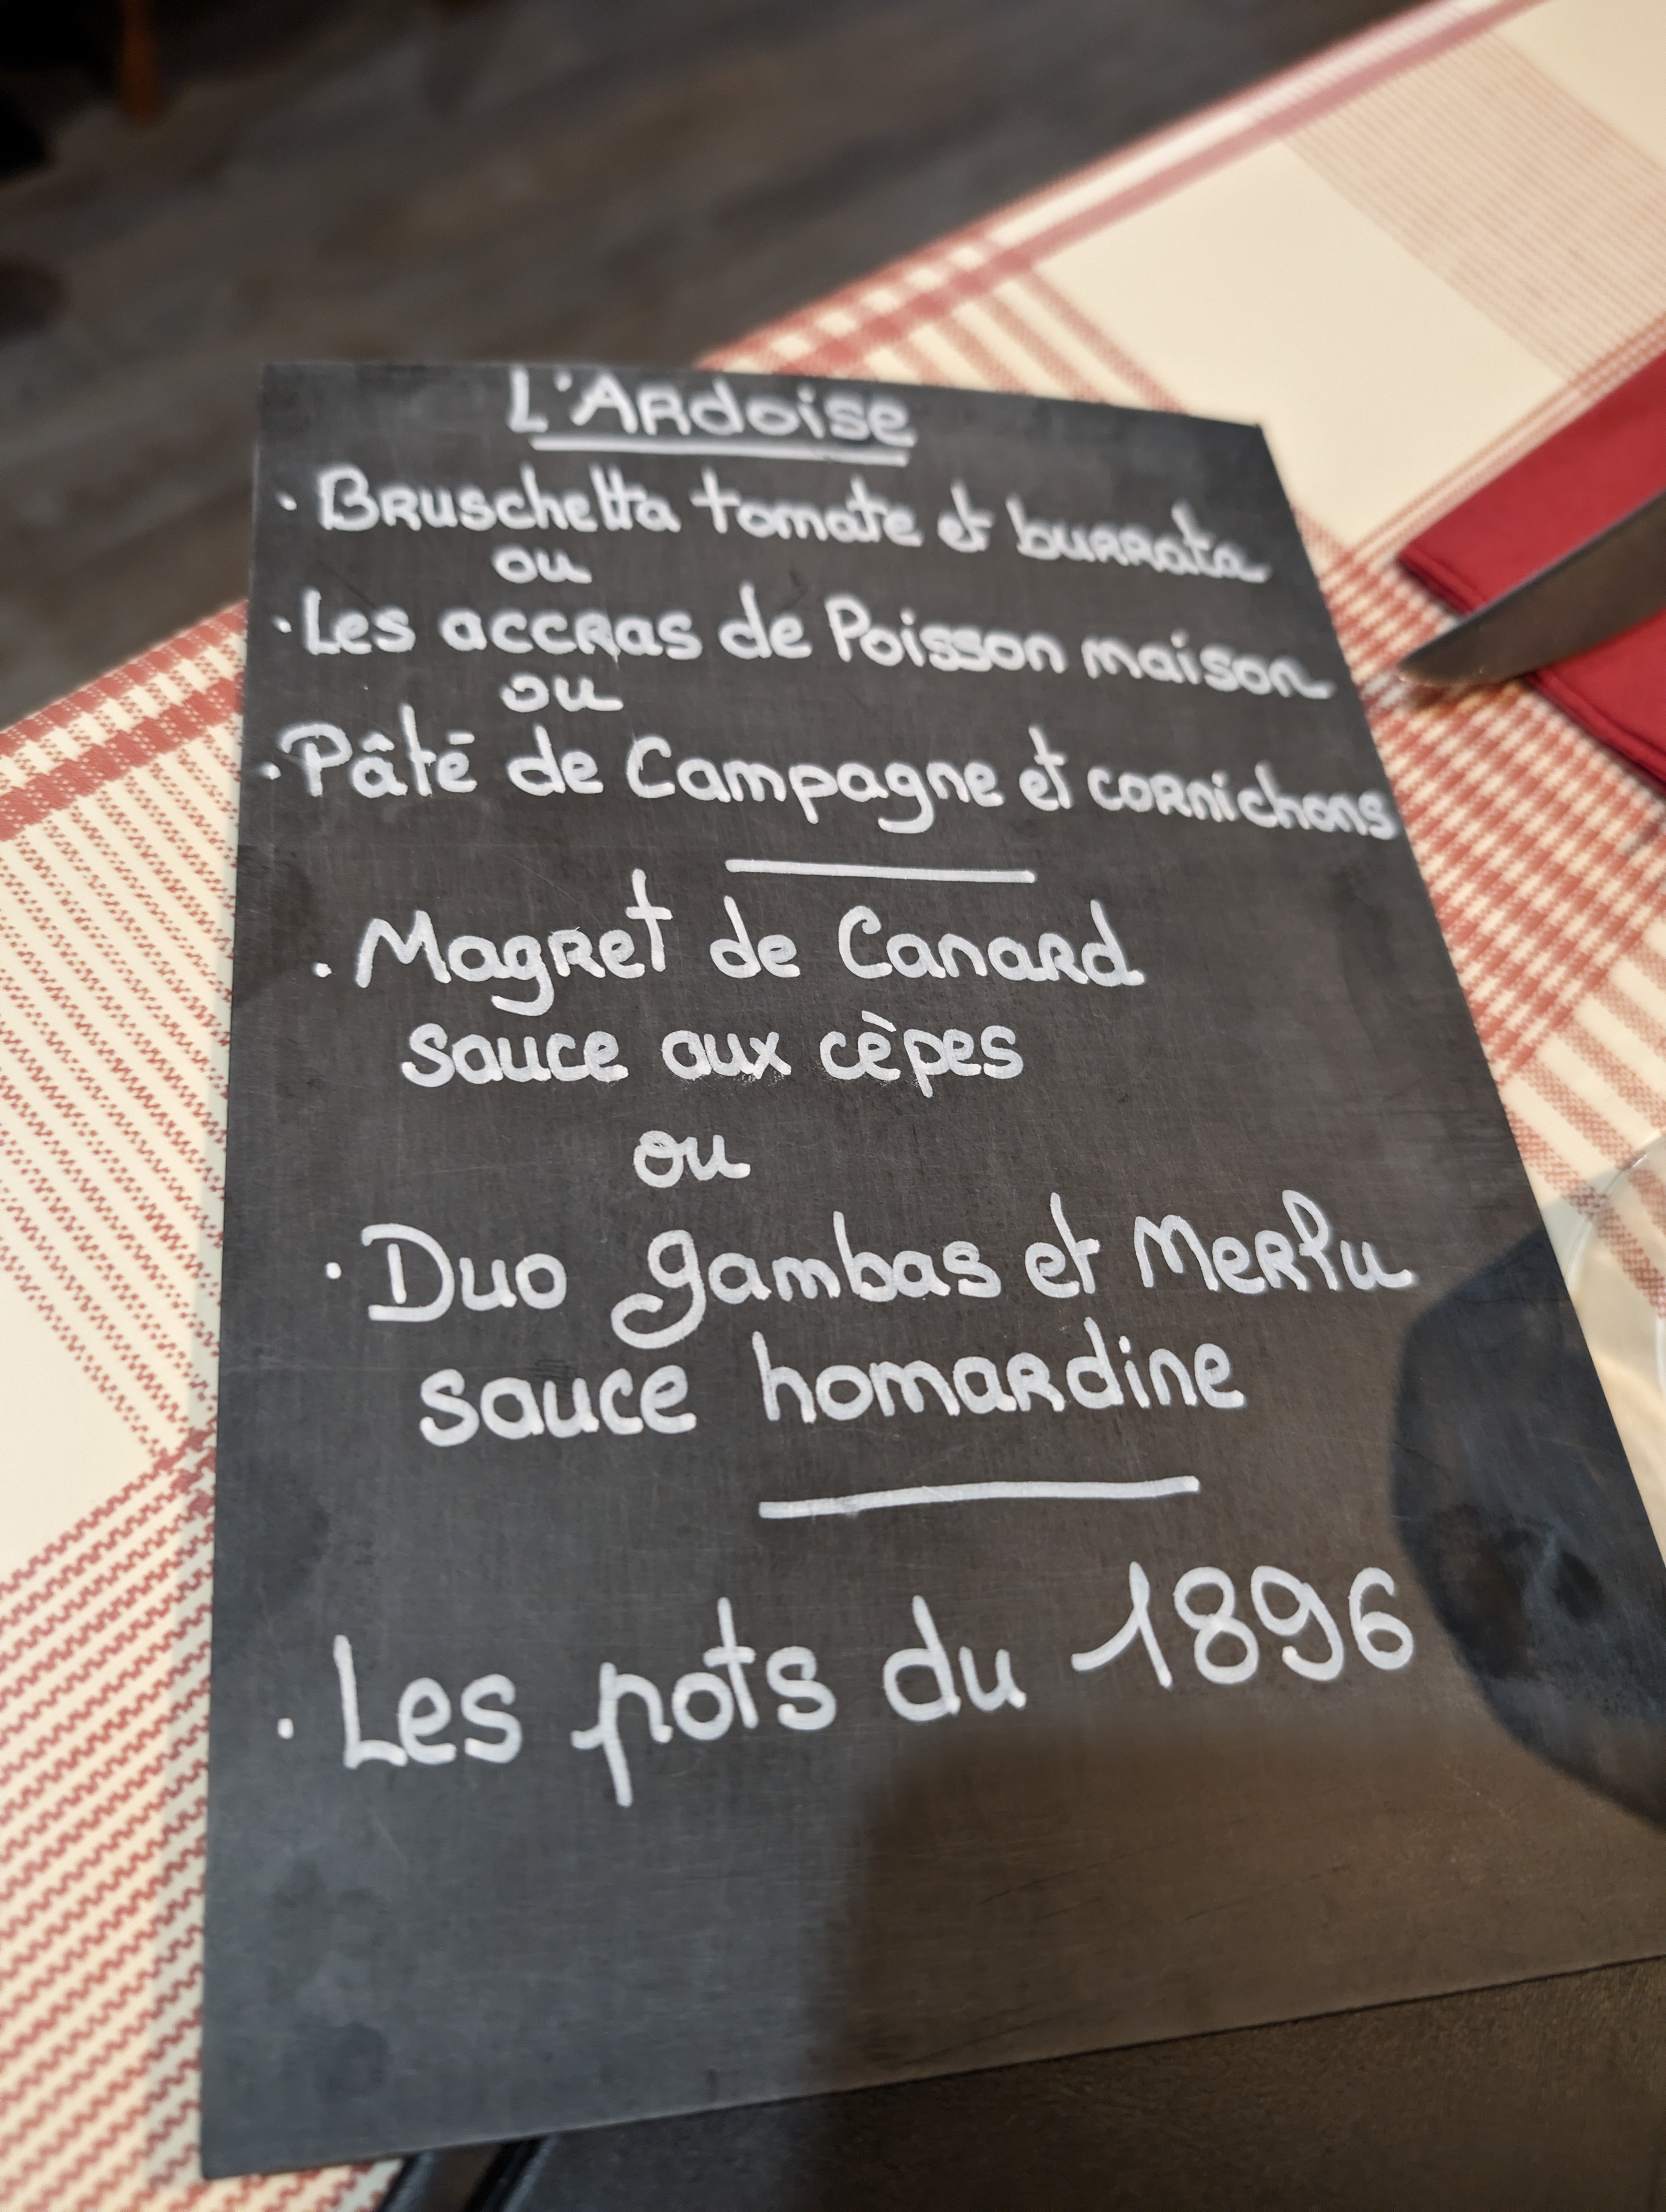 L'Ardoise
· Bruschetta tomate et burrata
ou
· Les accras de Poisson maison
ou
· Pâté de Campagne et cornichons
· Magret de Canard
sauce aux cèpes
ou
· Duo gambas et Merlu
sauce homardine
· Les pots du 1896